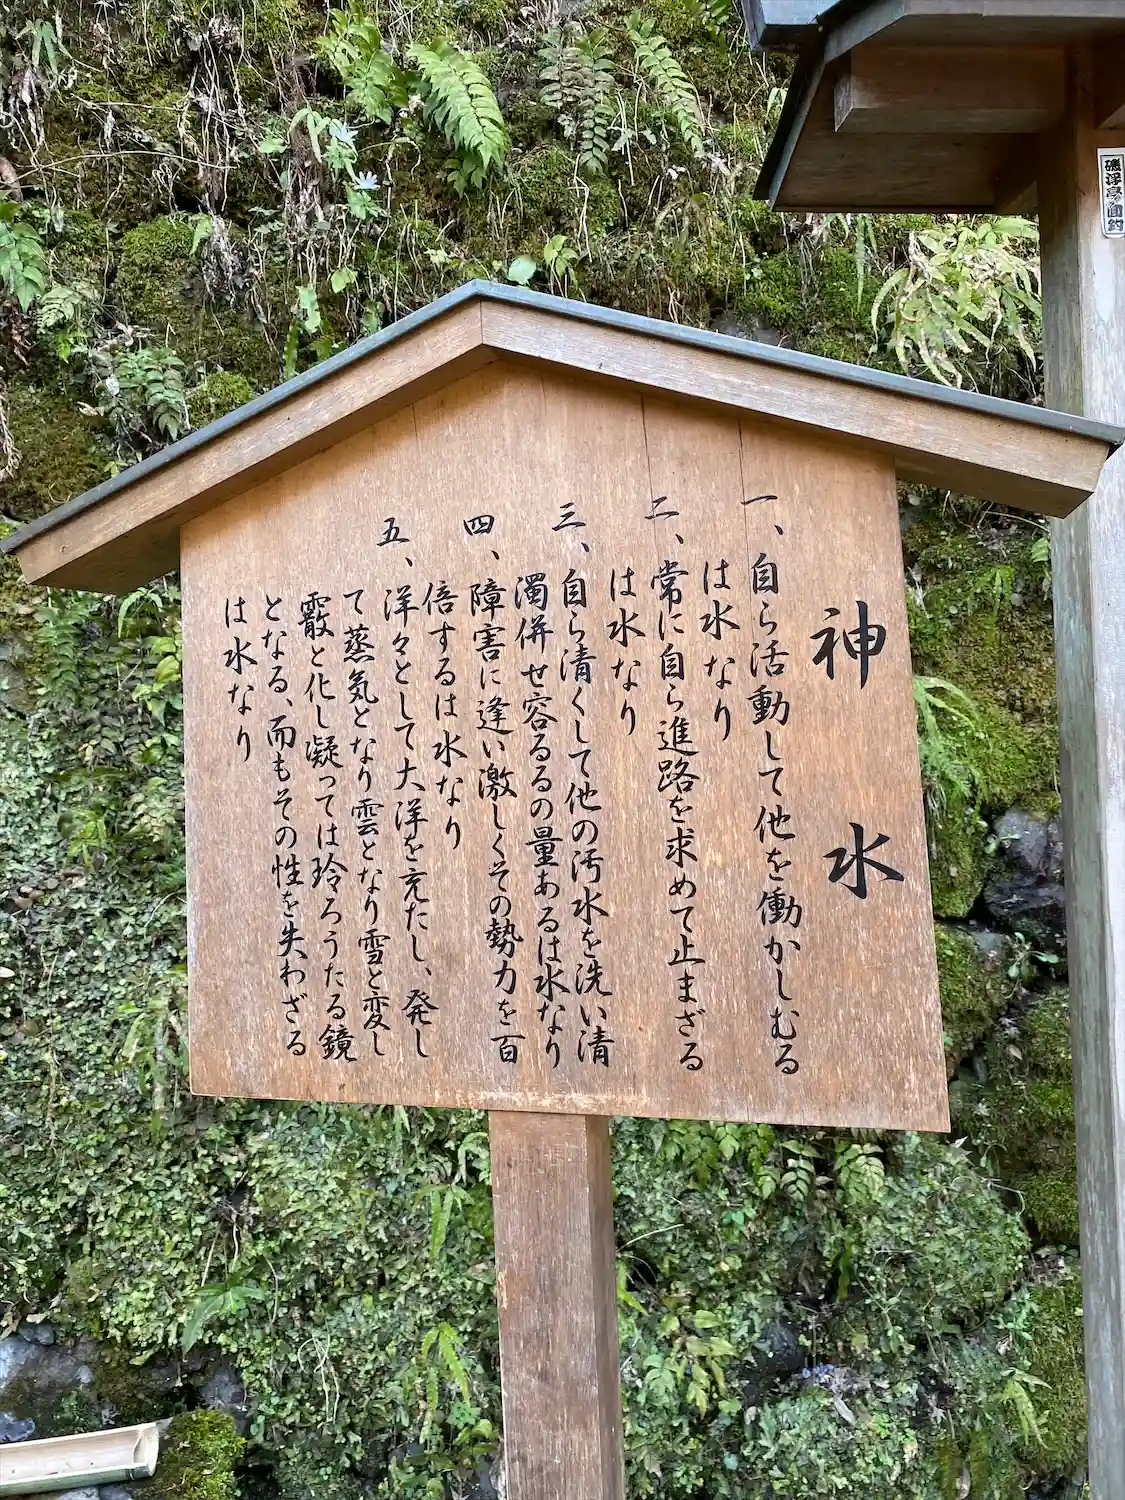 神水
一、自ら活動して他を働かしむる
は水なり
二、常に自ら進路を求めて止まざる
は水なり
三、自ら清くして他の汚水を洗い清
濁併せ容るるの量あるは水なり
四、障害に逢い激しくその勢力を百
倍するは水なり
五、洋々として大洋を充たし、発し
て蒸気となり雲となり雪と変し
霰と化し凝っては玲ろうたる鏡
となる、而もその性を失わざる
は水なり
磯浮亭